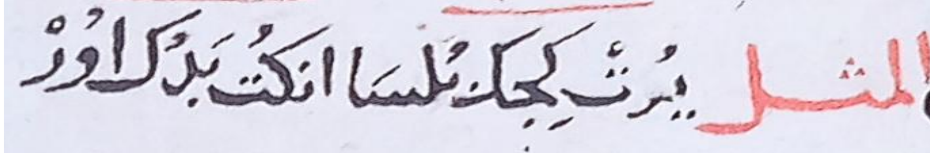 المثل يُرتْ كِجك بُلسَا انكُت بَدُك اوُرْ